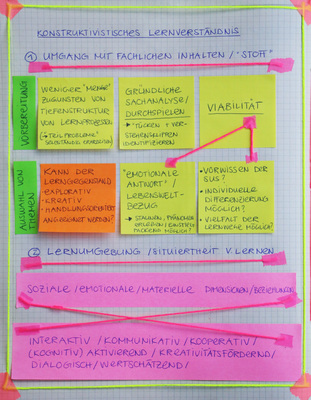 KONSTRUKTIVISTISCHES LERNVERSTÄNDNIS
① UMGANG MIT FACHLICHEN INHALTEN / "STOFF"
VORBEREITUNG
WENIGER "MENGE"
ZUGUNSTEN VON
TIEFENSTRUKTUR
VON LERNPROZESS.
GRÜNDLICHE
SACHANALYSE /
DURCHSPIELEN
→ TÜCKEN + VER-
STEHENSKLIPPEN
IDENTIFIZIEREN
VIABILITÄT
AUSWAHL VON
THEMEN
KANN DER
LERNGEGENSTAND
• EXPLORATIV
• KREATIV
• HANDLUNGSORIENTIERT
ANGEEIGNET WERDEN?
"EMOTIONALE
ANTWORT" /
LEBENSWELT-
BEZUG
→ STAUNEN, PHÄNOMEN
MÖGLICH?
• VORWISSEN DER
SUS?
• INDIVIDUELLE
DIFFERENZIERUNG
MÖGLICH?
• VIELFALT DER
LERNWEGE MÖGLICH?
② LERNUMGEBUNG / SITUIERTHEIT V. LERNEN
SOZIALE / EMOTIONALE / MATERIELLE DIMENSIONEN / BEZIEHUNGEN
INTERAKTIV / KOMMUNIKATIV / KOOPERATIV /
(KOGNITIV) AKTIVIEREND / KREATIVITÄTSFÖRDERND /
DIALOGISCH / WERTSCHÄTZEND /